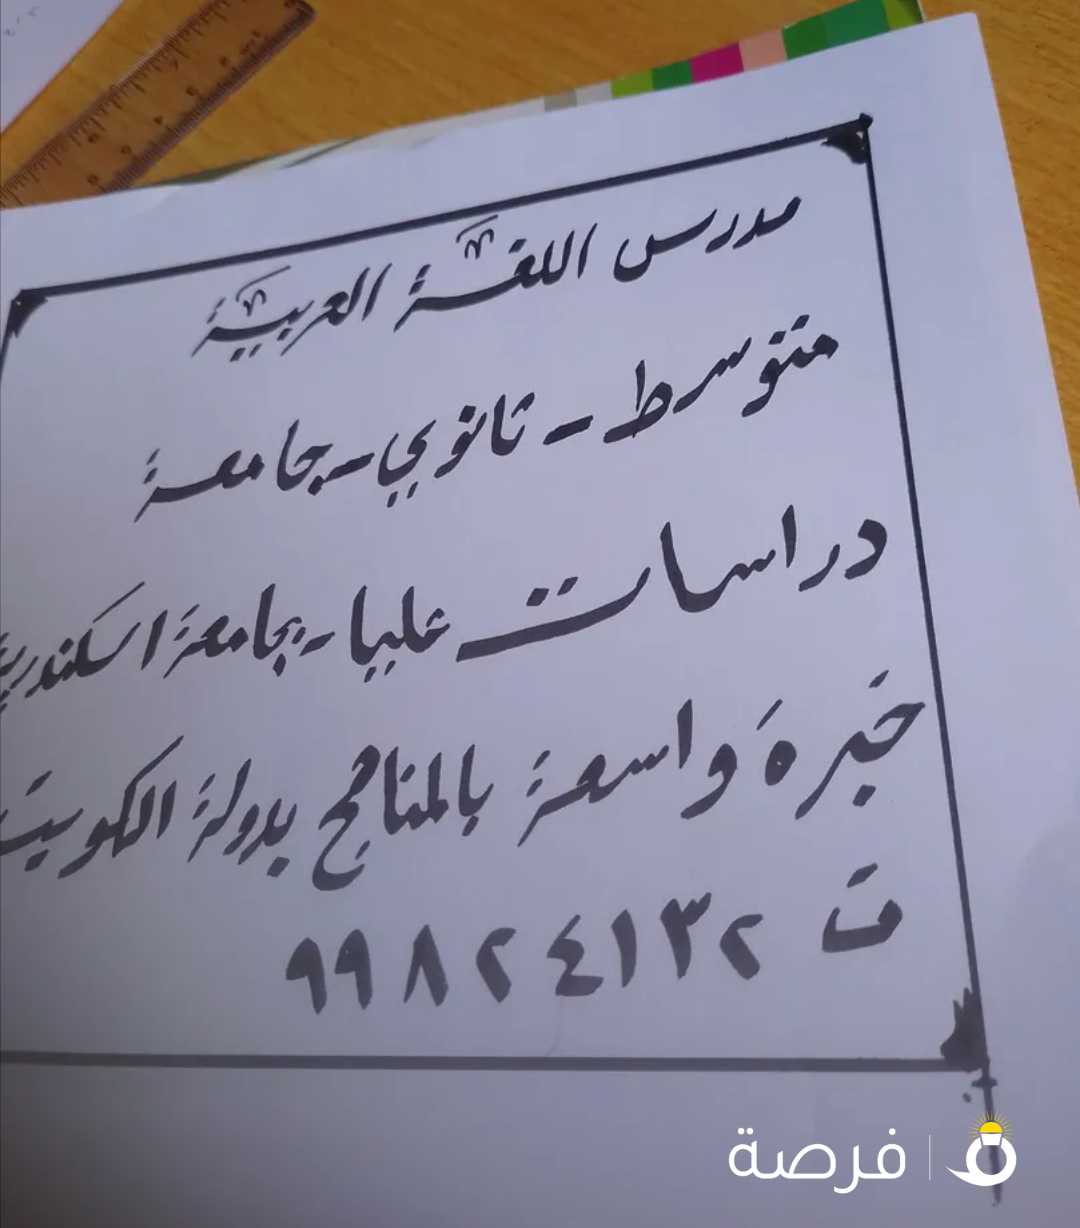 مدرس اللغَّة العربيَّة
متوسط - ثانوي - جامعة
دراسات عليا - جامعة اسكندرية
خبرة واسعة بالمناهج بدولة الكويت
ت ٩٩٨٢٤١٣٢
فرصة